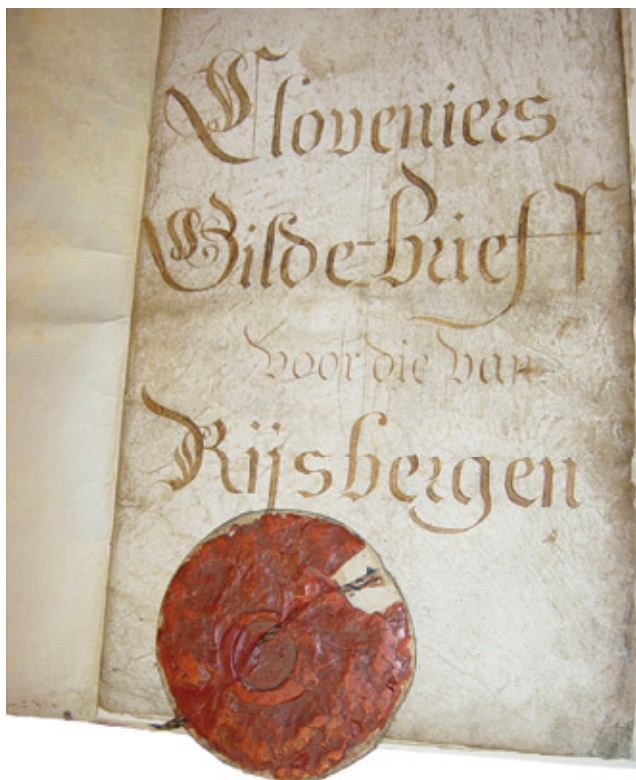 Cloveniers
Gilde-brieff
voor die van
Rijsbergen